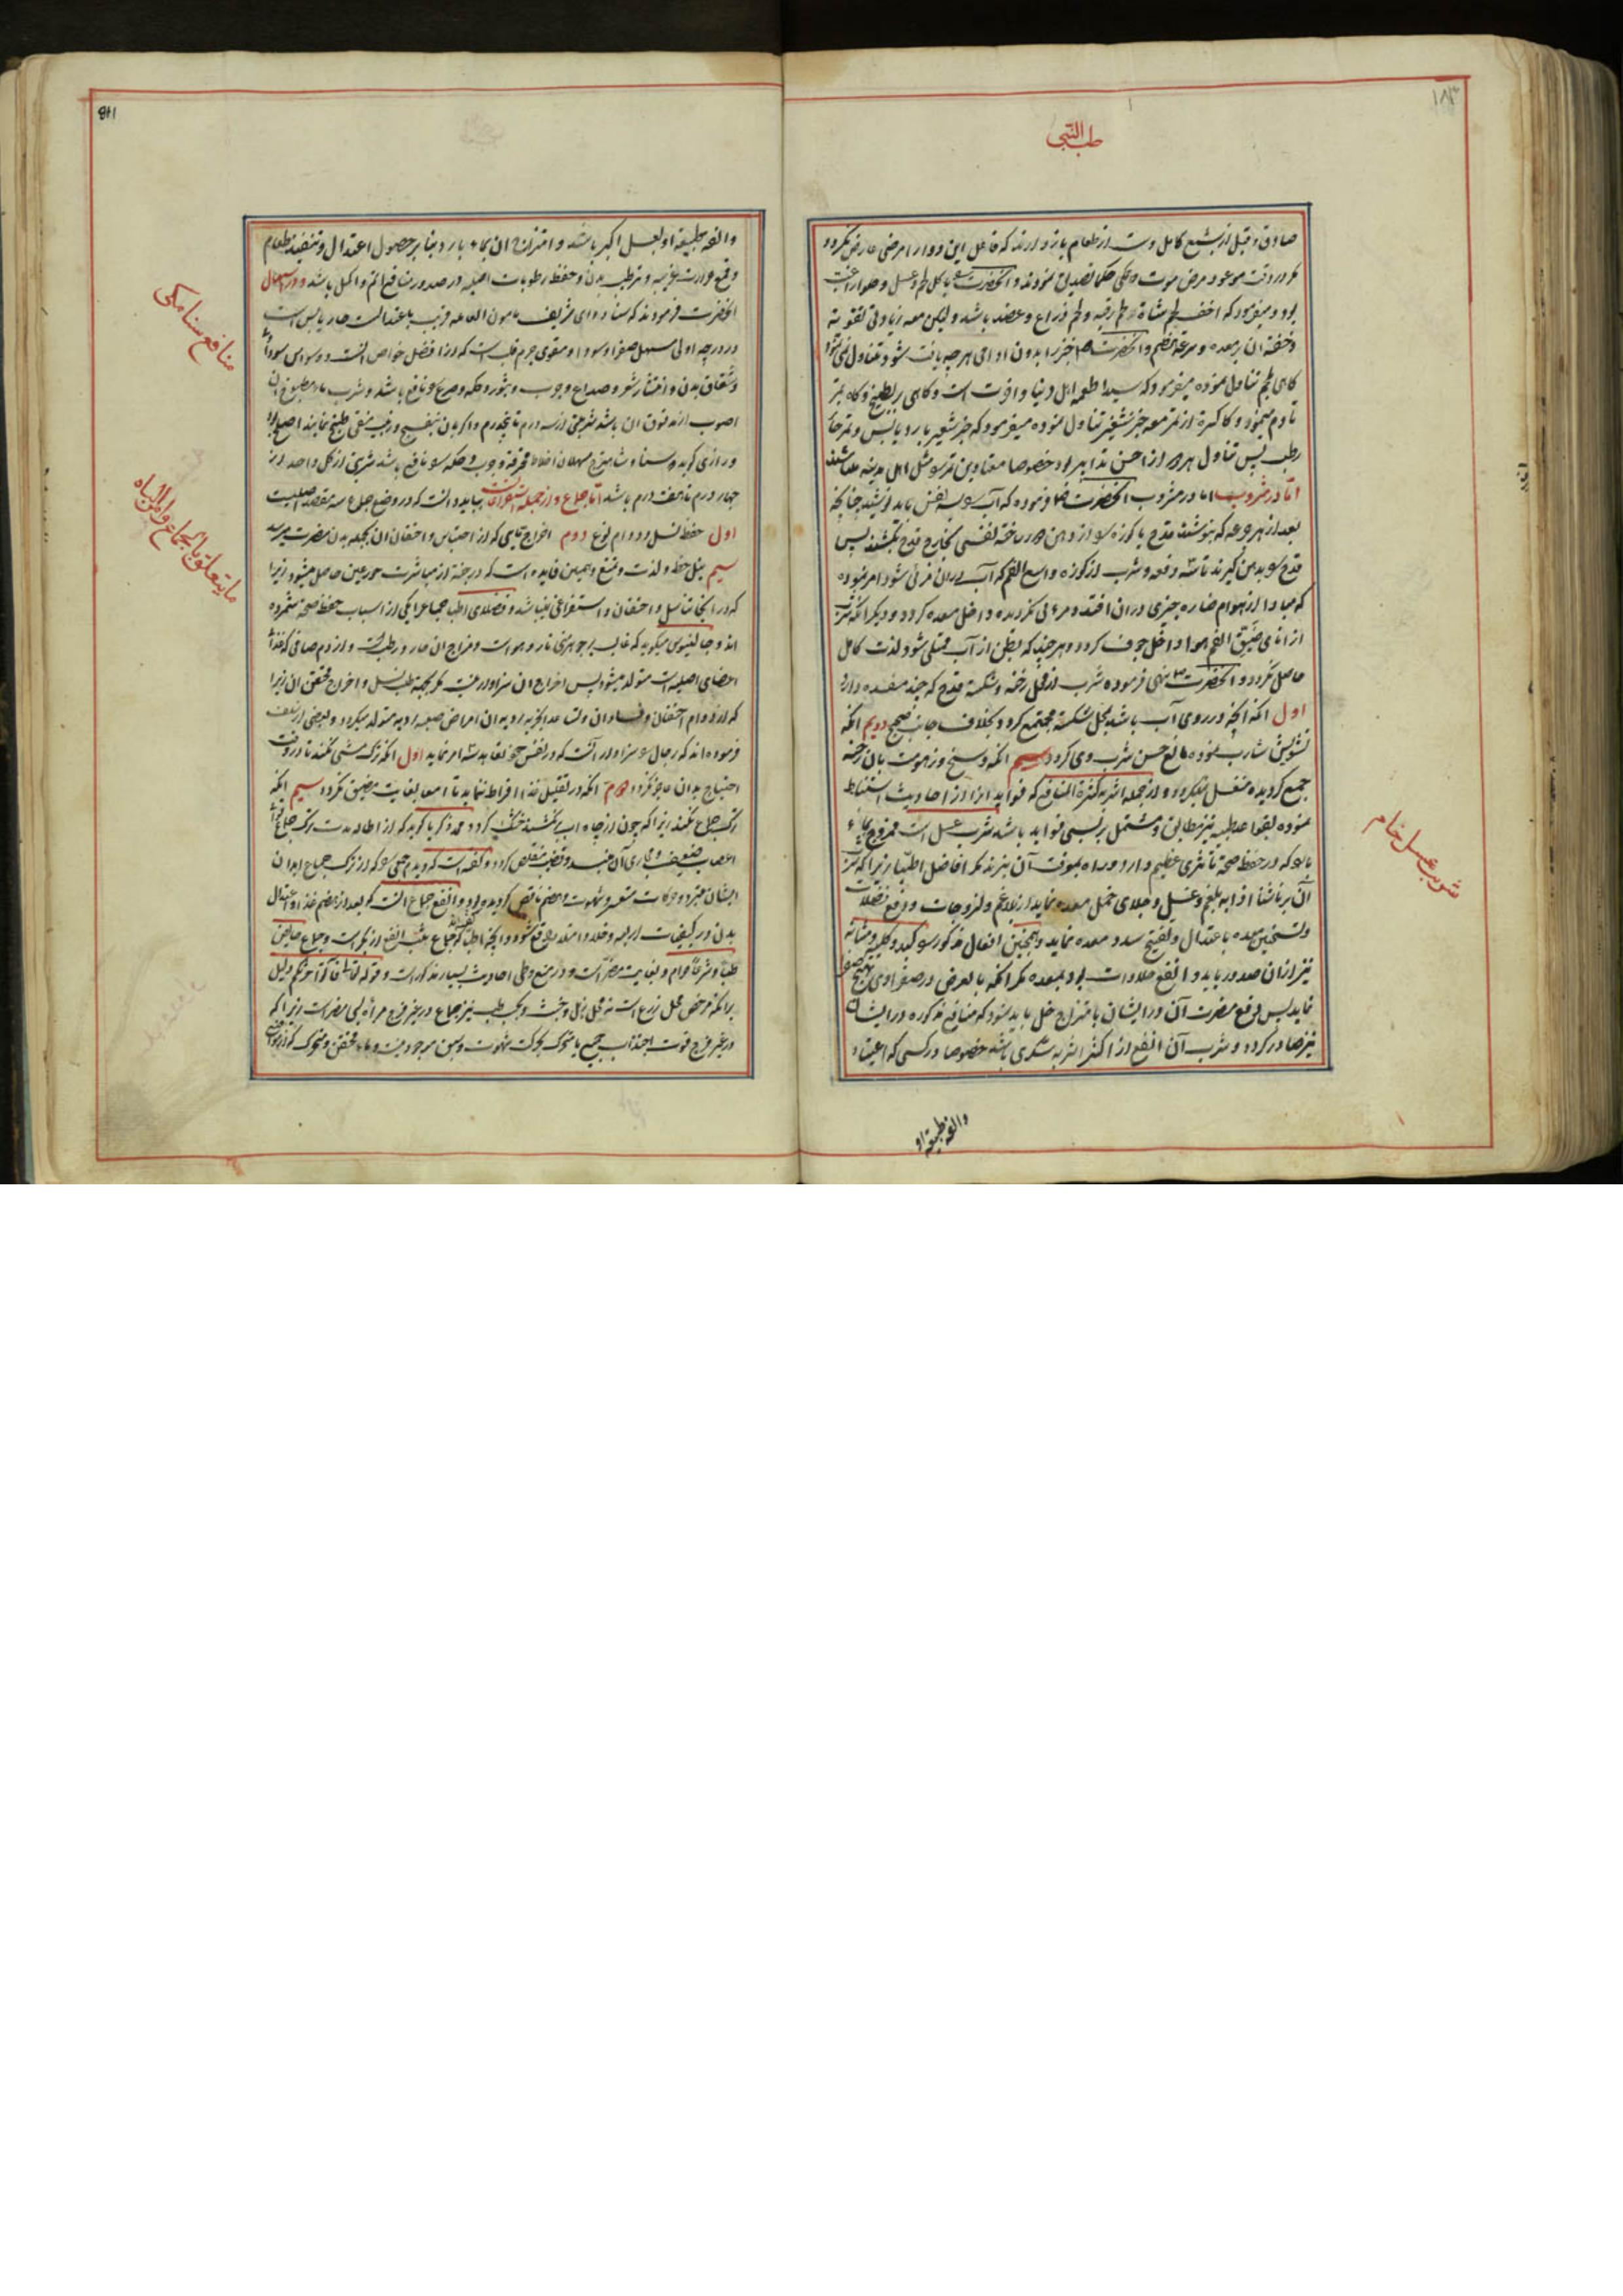 طب النبی
صادق و قبل از شبع کامل دست از طعام باز دارند که فاعل این دو را امرضی عارض نگردد
مگر در وقت موعود مرض موت و حکما تصدیق نمودند و آنحضرت باکل لحم و عسل و حلوا رغبت
بود و میفرمود که اخف لحم شاة لحم رقبه و لحم ذراع و عضد باشد و لیکن معه زیادتی تقویته
و خفته آن بر معده و سرعة هضم و آنحضرت خبز را بدون ادامی هر چه یافت شود تناول نمی نمود
کاهی بلحم تناول نموده میفرمود که سید اطعمه اهل دنیا و آخرت است و کاهی ببطیخ و کاه بتمر
تادم میمود و کا کسرة از تمر معه خبز شعیر تناول نموده میفرمود که خبز شعیر بارد یابس و تمر حار
رطب پس تناول هر دو از احسن تدابیر بود خصوصا معتادین تمر مثل اهل مدینه
اما در مشروب اما در مشروب آنحضرت فرموده که آب بسه نفس باید نوشید چنانچه
بعد از هر جرعه که بنوشند قدح یا کوزه از دهن دور ساخته نفسی بخارج قدح بکشند پس
قدح بدهن گیرند تا سه دفعه و شرب از کوزه واسع الفم که آب در ان مرئی شود امر نموده
که مبادا از هوام ضاره چیزی در ان افتد و مرئی نگردیده داخل معده گردد و دیگر آنکه شرب
از انای ضیق الفم هوا داخل جوف گردد و هر چند که بطن از آب ممتلی شود لذت کامل
حاصل نگردد و آنحضرت نهی فرموده شرب از محل رخنه و شکسته قدح که چند مفسده دارد
اول آنکه آنچه در روی آب باشد بمحل شکسته مجتمع گردد بخلاف جانب صحیح دویم آنکه
تشویش شارب نموده مانع حسن شرب وی گردد سیم آنکه وسخ و زهومت بان رخنه
جمع گردیده منغسل نمیگردد و از جمله اشربه کثیرة المنافع که فواید آنرا از احادیث استنباط
نموده بقواعد طبیه نیز مطابق و مشتمل بر بسی فواید باشد شرب عسل است ممزوج بماء
بارد که در حفظ صحة تاثیری عظیم دارد و راه بموقت آن نبرند مگر افاضل اطبا زیرا که شرب
آن بر ناشتا اذابه بلغم و غسل و جلای خمل معده نماید از بلاغم و لزوجات و دفع فضلات
و تسخین معده باعتدال و تفتیح سدد معده نماید و همچنین افعال مذکور بکبد و کلیه و مثانه
نیز ازان صدور یابد و انفع حلاوات بود بمعده مگر آنکه بالعرض در صفراوی تهییج صفرا
نماید پس دفع مضرت آن در ایشان بامتزاج خل باید نمود که منافع مذکوره در ایشان
نیز صادر گردد و شرب آن انفع از اکثر اشربه سکری باشد خصوصا در کسی که اعتیاد
والفه طبیعة او
شرب عسل خام
والفه طبیعة او بعسل اکبر باشد و امتزاج ان بماء بارد بنا بر حصول اعتدال و تنفید طعام
و قمع حرارت غریبه و ترطیب بدن و حفظ رطوبات اصلیه در صدور منافع اتم و اکمل باشد و در اسهال
آنحضرت فرمودند که سنا دوای شریف مامون الغایله قریب باعتدالست حار یابس است
در درجه اولی مسهل صفرا و سودا و مقوی جرم قلب است که از افضل خواص آنست و وسواس سوداوی
و شقاق بدن و انتشار شعر و صداع و جرب و بثور و حکه و صرع نافع باشد و شرب ماء مطبوخ ان
اصوب از مدقوق ان باشد شربتی از سه درم تا پنجدرم و اگر بان بنفسج و زبیب منقی طبخ نمایند اصلح بود
و رازی گوید سنا و شاهترج مسهلان اخلاط محترقة و جرب و حکه نافع باشد شربتی از کل واحد از
چهار درم تا هفت درم باشد اما جماع و از جمله استفراغات بباید دانست که در وضع جماع سه مقصد اصلیست
اول حفظ نسل و دوام نوع دوم اخراج مائی که از احتباس و احتقان ان بجمله بدن مضرت میرسد
سیم نیل حظ و لذت و تمتع و همین فایده است که در جنة از مباشرت حور عین حاصل میشود زیرا
که در آنجا تناسل و احتقان و استفراغی نباشد و فضلای اطبا جماع را یکی از اسباب حفظ صحة شمرده
اند و جالینوس میگوید که غالب بر جوهر منی نار و هواست و مزاج ان حار و رطبست و از دم صافی که غذای
اعضای اصلیه است متولد میشود پس اخراج ان سزاوار نیست مگر بجهة طلب نسل و اخراج محتقن ان زیرا
که از دوام احتقان و فساد ان و تصاعد ابخره ردیه ان امراض صعبه ردیه متولد میگردد و بعضی از سلف
فرموده اند که رجال سزاوار آنست که در نفس خود تعاهد سه امر نماید اول آنکه ترک مشی نکند تا در وقت
احتیاج بدان عاجز نگردد دوم آنکه در تقلیل غذا افراط ننماید تا امعا بغایت مضیق نگردد سیم آنکه
ترک جماع نکند زیرا که چون از چاه آب بر نکشند خشک گردد محمد زکریا گوید که از اطاله مدت ترک جماع قوای
اعصاب ضعیف و مجاری آن منسد و قضیب متقلص گردد و گفته است که دیدم جمعی که از ترک جماع ابدان
ایشان متبرد و حرکات متعسر و شهوت و هضم ناقص گردیده بود و انفع جماع آنست که بعد از هضم غذا و اعتدال
بدن در کیفیات اربعه و خلا و امتلا واقع شود و آنچه اطبا گفته اند که جماع بثیب انفع از بکر است و جماع حایض
طبا و شرعا حرام و بغایت مضر است و در منع وطی احادیث بسیار مذکور است و قوله تعالی فاتوا حرثکم دلیل
برانکه غرض محل زرع است نه محل زبل و خبث و بحسب طب نیز جماع در غیر فرج مراه بسی مضر است زیرا که
در غیر فرج قوت اجتذاب جمیع ما تحرک بحرکت شهوت و لمس موجود نیست و ماء محتقن و متحرک که از
منافع سنا مکی
ما یتعلق بالجماع و الباه